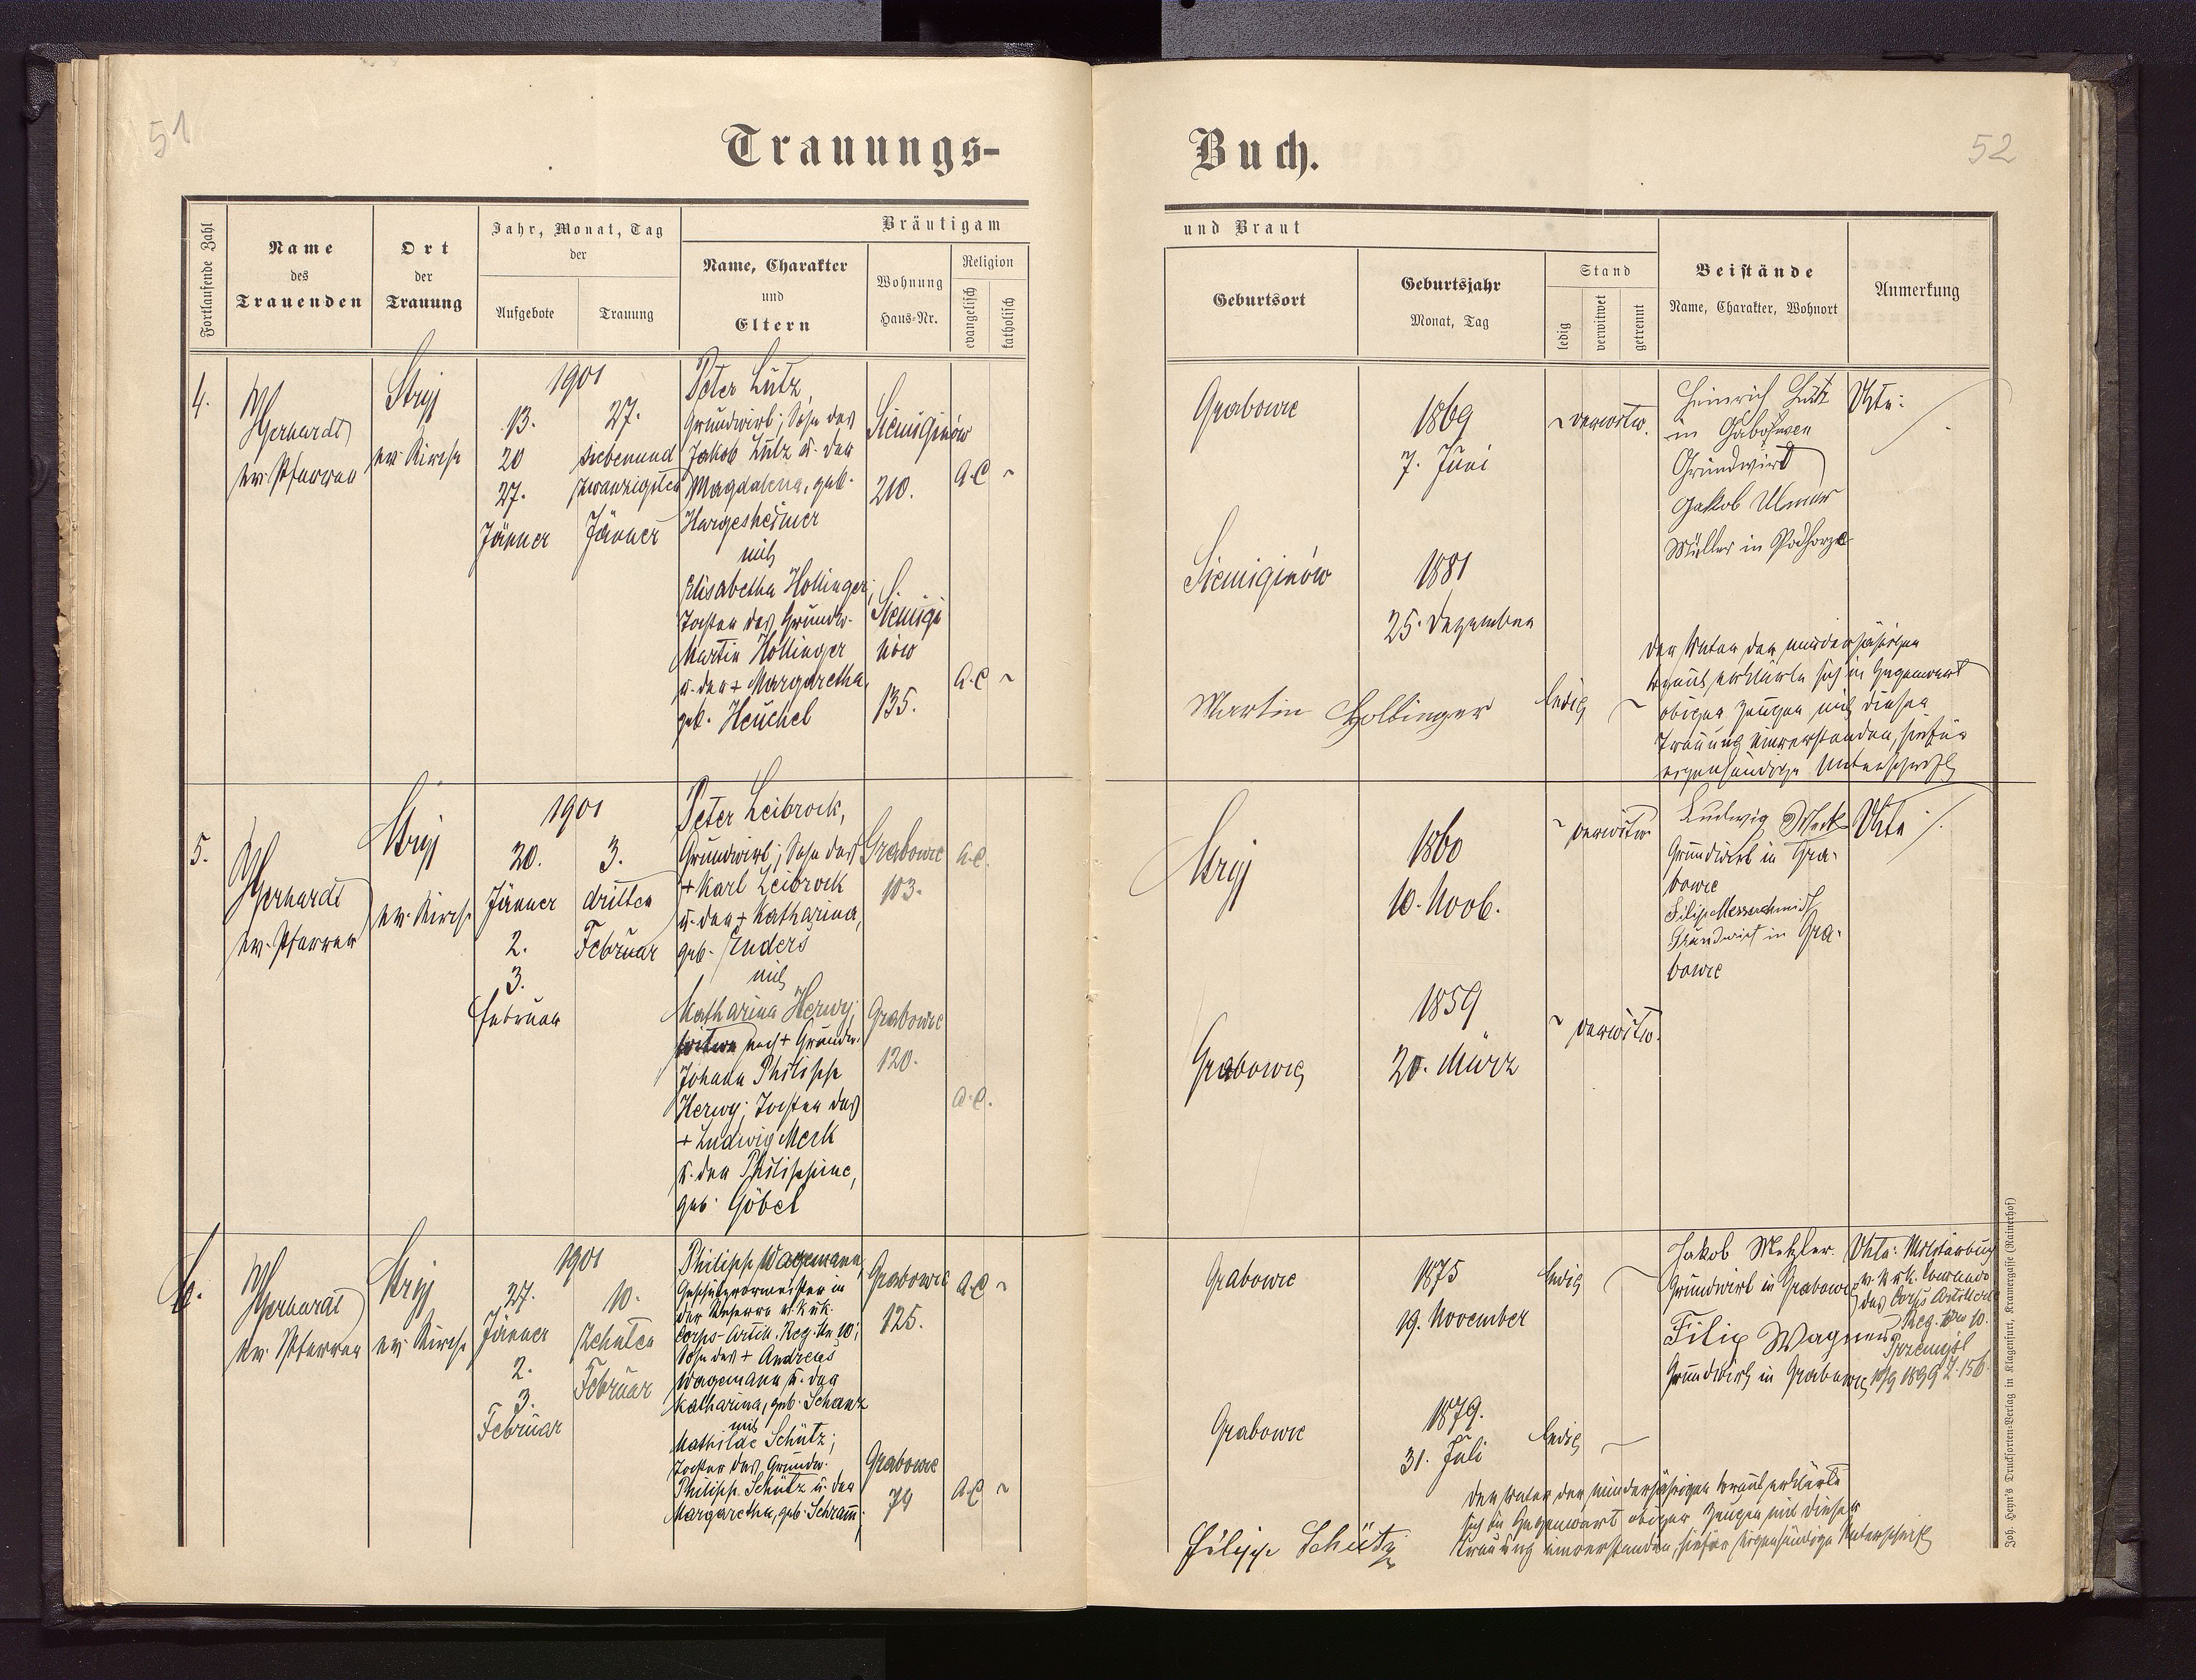 51
Trauungs-
Fortlaufende Zahl
Name
des
Trauenden
Ort
der
Trauung
Jahr, Monat, Tag
der
Aufgebote
Trauung
Bräutigam
Name, Charakter
und
Eltern
Wohnung
Haus-Nr.
Religion
evangelisch
katholisch
4.
ev. Pfarrer
Stryj
ev. Kirche
1901
13.
20
27.
Jänner
27.
siebenund
zwanzigsten
Jänner
Peter Lutz,
Grundwirt; Sohn des
Jakob Lutz u. der
Magdalena, geb.
Hargesheimer
mit
Elisabetha Hollinger;
Tochter des Grundw.
Martin Hollinger
u. der + Margaretha,
geb. Heuchel
Siemiginów
210.
A.C ~
Siemigi
nów
135.
A.C ~
5.
ev. Pfarrer
Stryj
ev. Kirche
1901
20.
Jänner
2.
3.
Februar
3.
dritten
Februar
Peter Leibrock,
Grundwirt; Sohn des
+ Karl Leibrock
u. der + Katharina,
geb. Enders
mit
Katharina Herwy;
Witwe nach + Grundw.
Johann Philipp
Herwy; Tochter des
+ Ludwig Merk
u. der Philippine,
geb. Göbel
Grabowce
103.
A.C.
Grabowce
120.
A.C.
6.
ev. Pfarrer
Stryj
ev. Kirche
1901
27.
Jänner
2.
3.
Februar
10.
Zehnten
Februar
Philipp Wagemann,
Geschützvormeister in
der Reserve d. k. u. k.
Corps-Artill. Reg. Nr 10;
Sohn des + Andreas
Wagemann u. der
Katharina, geb. Schanz
mit
Mathilde Schütz;
Tochter des Grundw.
Philipp Schütz u. der
Margaretha, geb. Schram̄;
Grabowce
125.
A.C ~
Grabowce
79
A.C ~
52
Buch.
und Braut
Geburtsort
Geburtsjahr
Monat, Tag
Stand
ledig
verwitwet
getrennt
Beistände
Name, Charakter, Wohnort
Anmerkung
Grabowce
1869
7. Juni
~ verwitw.
Heinrich Lutz
in
Grundwirt
Jakob Ulmer
Müller in Podhorze
Siemiginów
1881
25. Dezember
ledig
Martin Hollinger
Der Vater der minderjährigen
Braut erklärte sich in Gegenwart
obiger Zeugen mit dieser
Trauung einverstanden, hiefür
eigenhändige Unterschrift
Stryj
1860
10. Novb.
~ verwitw.
Ludwig Merk
Grundwirt in Gra-
bowce
Filip Messerschmidt
Grundwirt in Gra-
bowce
Grabowce
1859
20. März
~ verwitw.
Grabowce
1875
19. November
ledig
Jakob Metzler
Grundwirt in Grabowce
Filip Wagner
Grundwirt in Grabowce
des Corps Artillerie
Reg. Nro 10.
Przemysl
10/9 1899 Z. 156.
Grabowce
1879.
31. Juli
ledig
Der Vater der minderjährigen Braut erklärte
sich in Gegenwart obiger Zeugen mit dieser
Trauung einverstanden, hiefür eigenhändige Unterschrift
Filipp Schütz
Joh. Heyn's Drucksorten-Verlag in Klagenfurt, Kramergasse (Rainerhof)